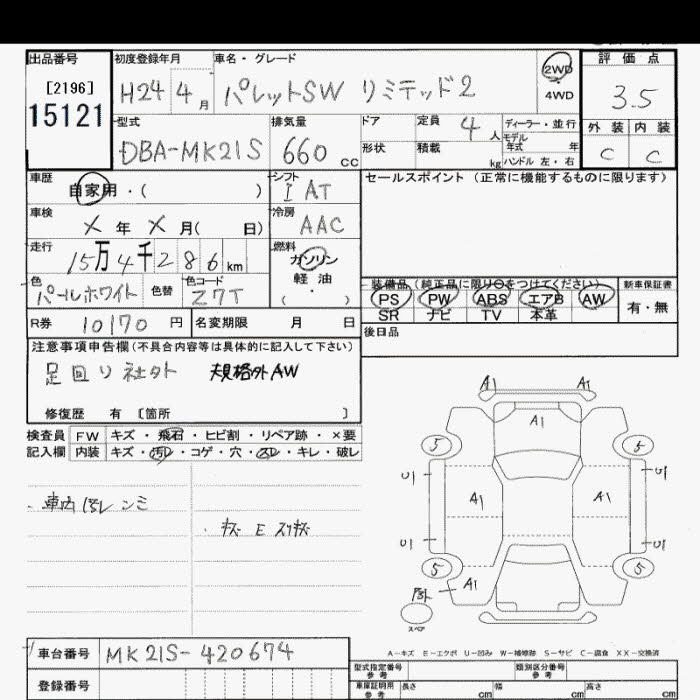 出品番号
[2196]
15121
初度登録年月
H24 4月
車名・グレード
パレットSW リミテッド2
2WD
4WD
評価点
3.5
外装 内装
C C
型式
DBA-MK21S
排気量
660 cc
ドア
形状
定員 4人
積載 kg
ディーラー・並行
モデル
年式 年
ハンドル 左・右
車歴
自家用・( )
シフト
I AT
車検
X 年 X 月( 日)
冷房
AAC
走行
15万4千286km
燃料
ガソリン
軽油
( ・ )
色
パールホワイト
色替
色コード
Z7T
R券 10170 円
名変期限 月 日
セールスポイント (正常に機能するものに限ります)
装備品 (純正品に限り○をつけてください)
PS PW ABS エアB AW
SR ナビ TV 本革
新車保証書
有・無
後日品
注意事項申告欄(不具合内容等は具体的に記入して下さい)
足回り社外 規格外AW
修復歴 有 [箇所 ]
検査員
記入欄
FW キズ・飛石・ヒビ割・リペア跡・×要
内装 キズ・汚レ・コゲ・穴・スレ・キレ・破レ
・車内汚レ シミ
A1 A1
A1
5 5
U1 U1
A1 A1
U1 U1
5 5
A1
スペア
A-キズ E-エクボ U-凹み W-補修跡 S-サビ C-腐食 XX-交換済
車台番号 MK21S-420674
登録番号
型式指定番号
参考
類別区分番号
参考
車庫証明用
参考
長さ cm
幅 cm
高さ cm